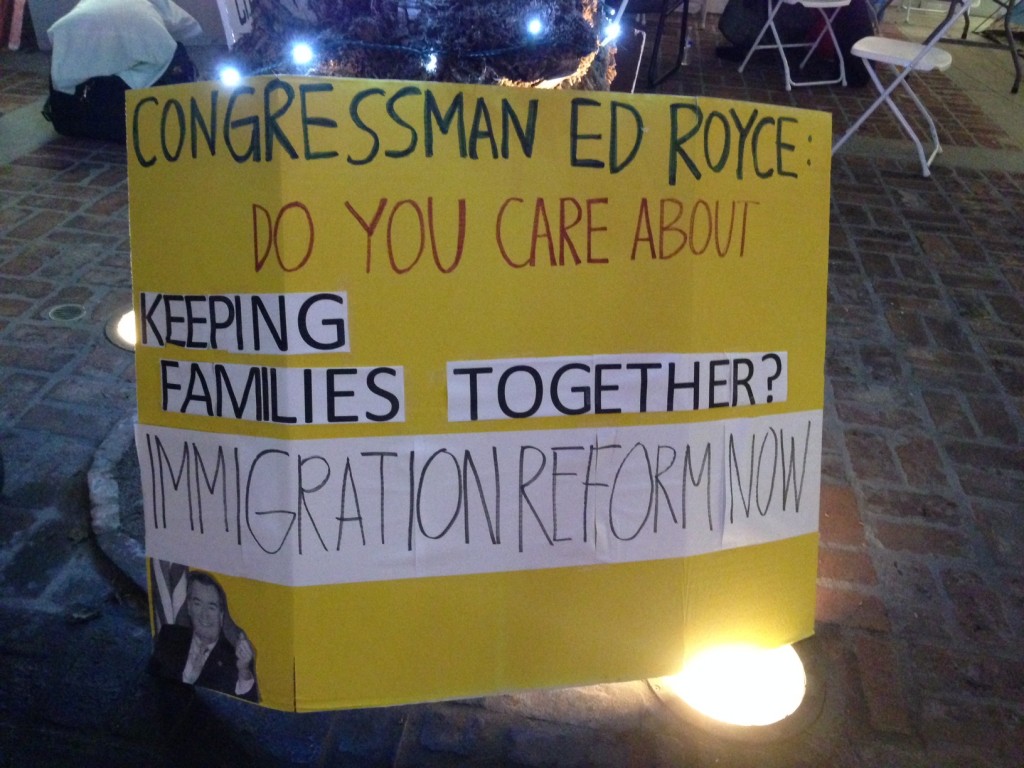 CONGRESSMAN ED ROYCE:
DO YOU CARE ABOUT
KEEPING
FAMILIES TOGETHER?
IMMIGRATION REFORM NOW